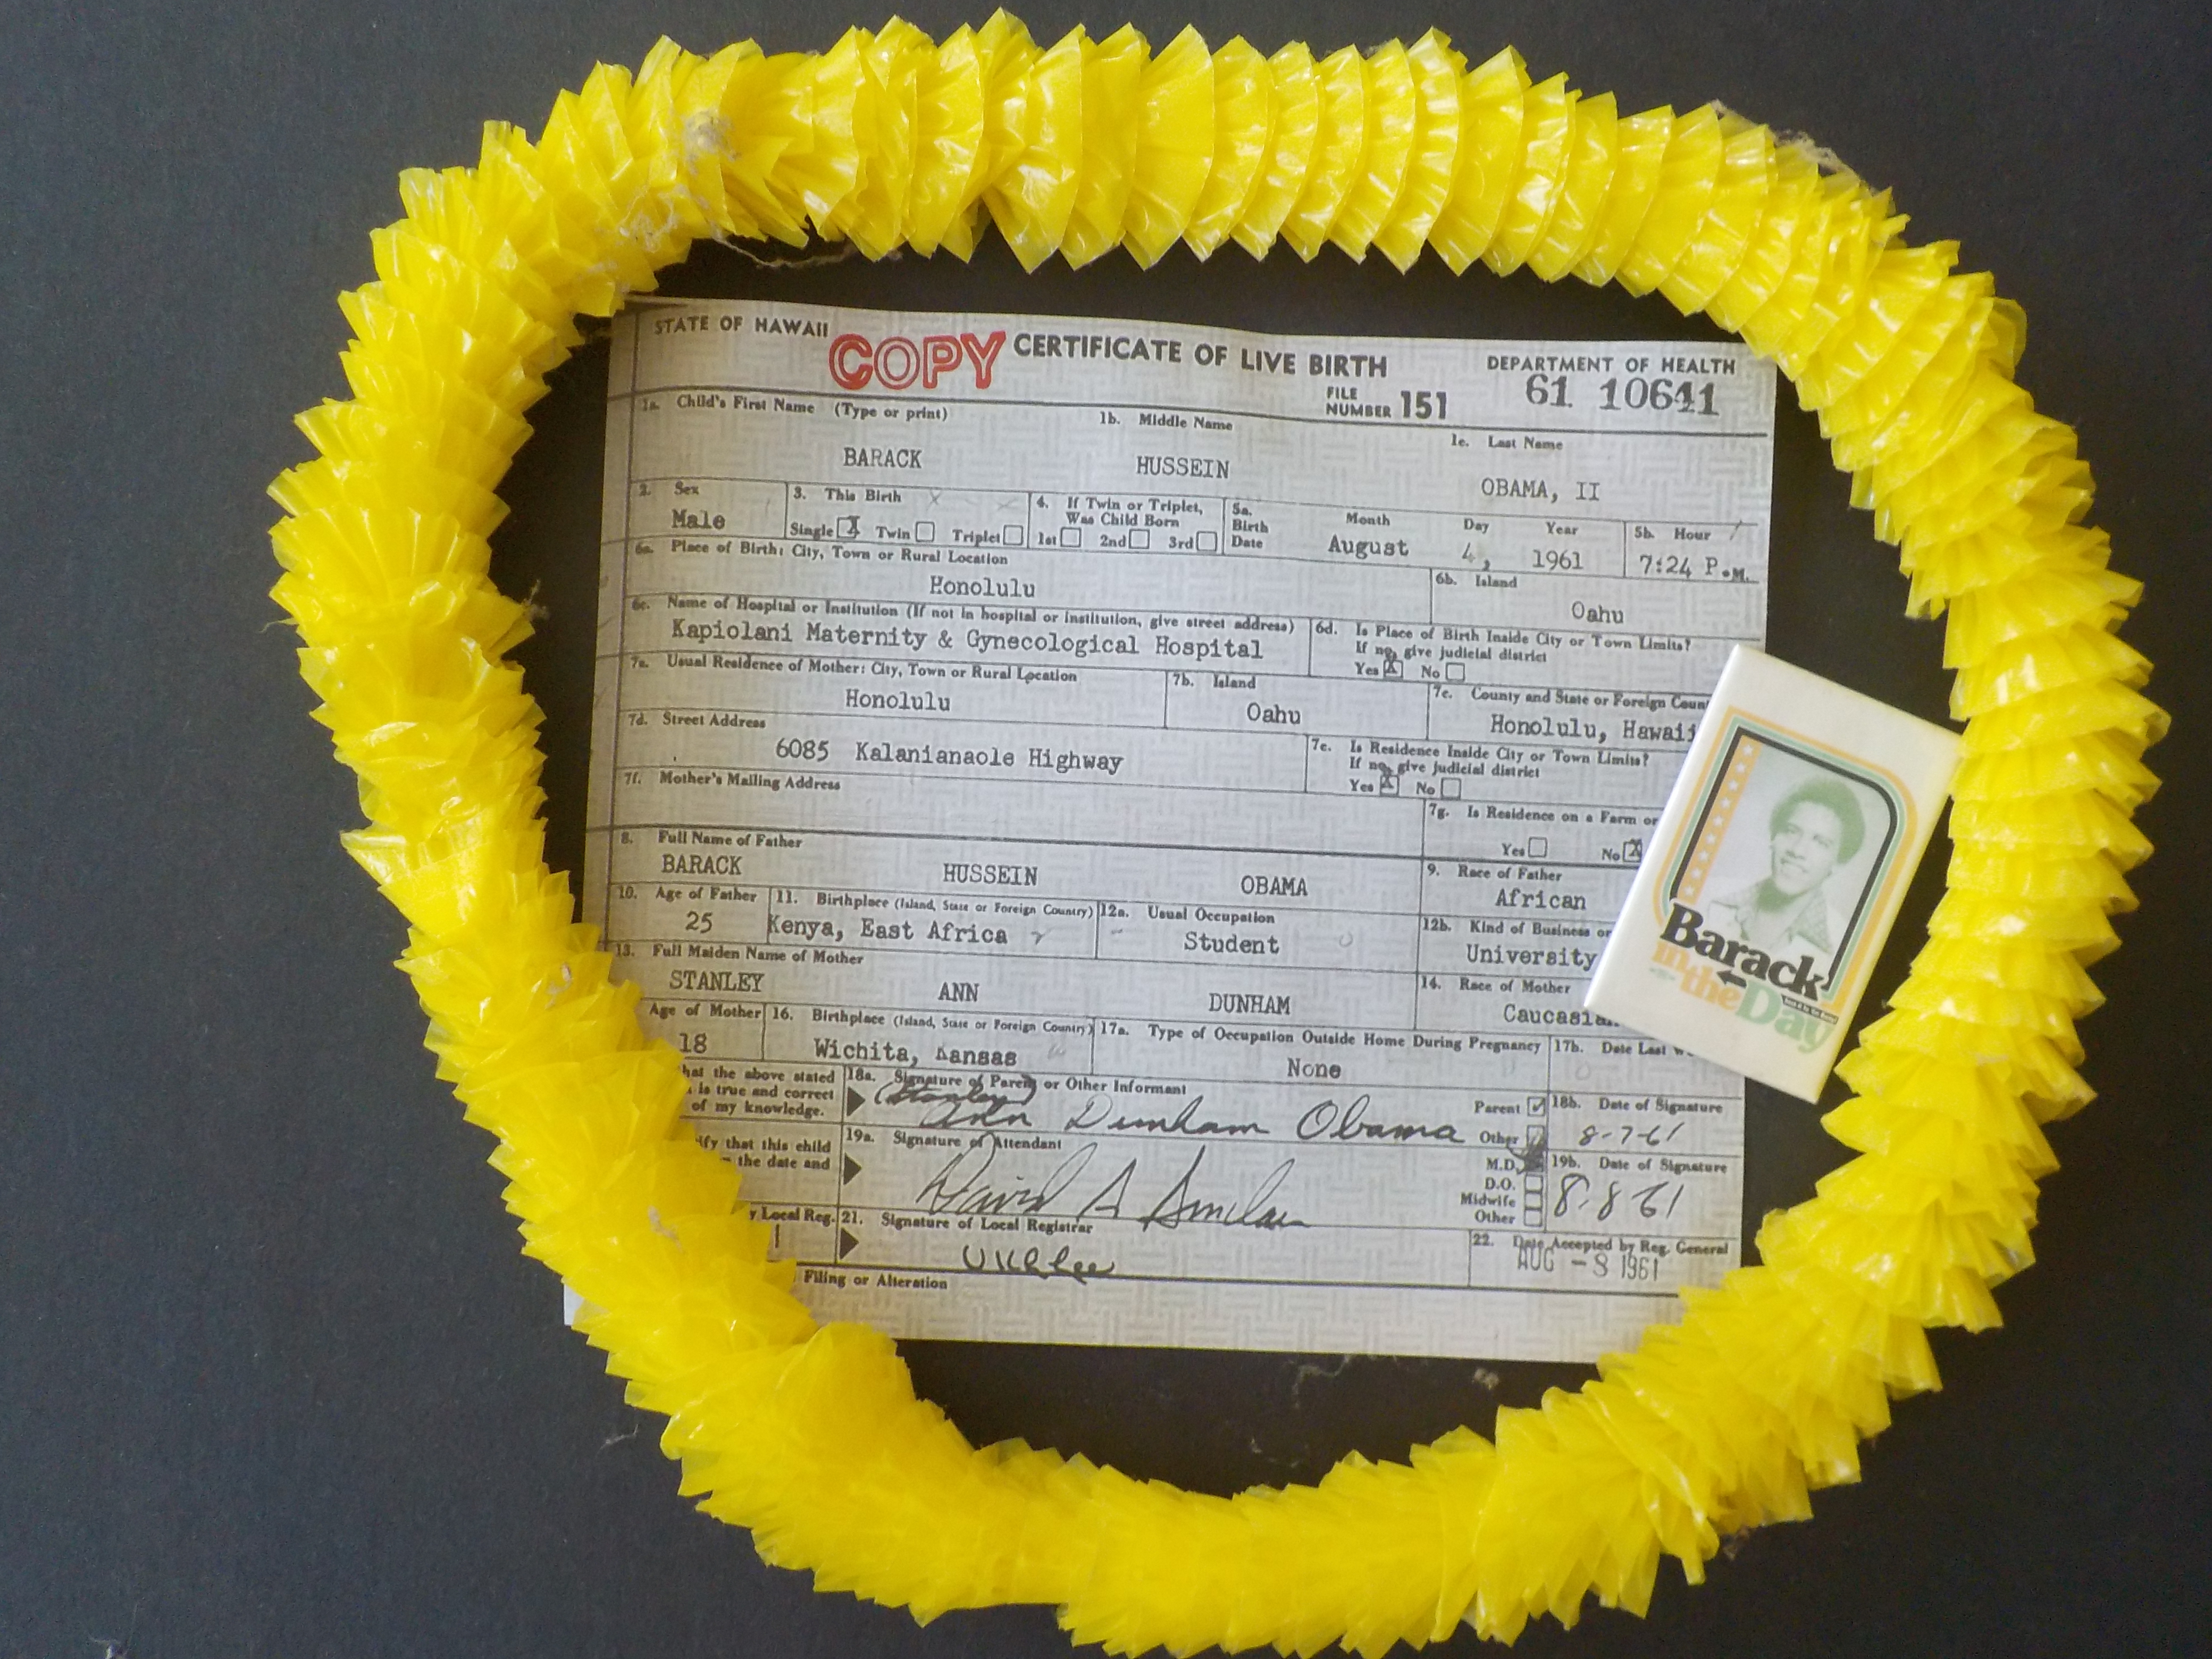 STATE OF HAWAII
COPY
CERTIFICATE OF LIVE BIRTH
DEPARTMENT OF HEALTH
FILE NUMBER 151
61 10641
1a. Child's First Name (Type or print)
1b. Middle Name
1c. Last Name
BARACK
HUSSEIN
OBAMA, II
2. Sex
Male
3. This Birth
Single X Twin Triplet
4. If Twin or Triplet,
Was Child Born
1st 2nd 3rd
5a. Birth Date
Month Day Year
August 4, 1961
5b. Hour
7:24 P.M.
6a. Place of Birth: City, Town or Rural Location
Honolulu
6b. Island
Oahu
6c. Name of Hospital or Institution (If not in hospital or institution, give street address)
Kapiolani Maternity & Gynecological Hospital
6d. Is Place of Birth Inside City or Town Limits?
If no, give judicial district
Yes X No
7a. Usual Residence of Mother: City, Town or Rural Location
Honolulu
7b. Island
Oahu
7c. County and State or Foreign Coun
Honolulu, Hawaii
7d. Street Address
6085 Kalanianaole Highway
7e. Is Residence Inside City or Town Limits?
If no, give judicial district
Yes X No
7f. Mother's Mailing Address
7g. Is Residence on a Farm or
Yes No X
8. Full Name of Father
BARACK HUSSEIN OBAMA
9. Race of Father
African
10. Age of Father
25
11. Birthplace (Island, State or Foreign Country)
Kenya, East Africa
12a. Usual Occupation
Student
12b. Kind of Business or
University
13. Full Maiden Name of Mother
STANLEY ANN DUNHAM
14. Race of Mother
Caucasia
Age of Mother
18
16. Birthplace (Island, State or Foreign Country)
Wichita, Kansas
17a. Type of Occupation Outside Home During Pregnancy
None
17b. Date Last W
hat the above stated
is true and correct
of my knowledge.
18a. Signature of Parent or Other Informant
(Stanley)
Ann Dunham Obama
Parent
Other
18b. Date of Signature
8-7-61
ify that this child
the date and
19a. Signature of Attendant
David A Sinclair
M.D.
D.O.
Midwife
Other
19b. Date of Signature
8-8-61
y Local Reg.
21. Signature of Local Registrar
U K L Lee
22. Date Accepted by Reg. General
AUG -8 1961
Filing or Alteration
Barack
in the Day